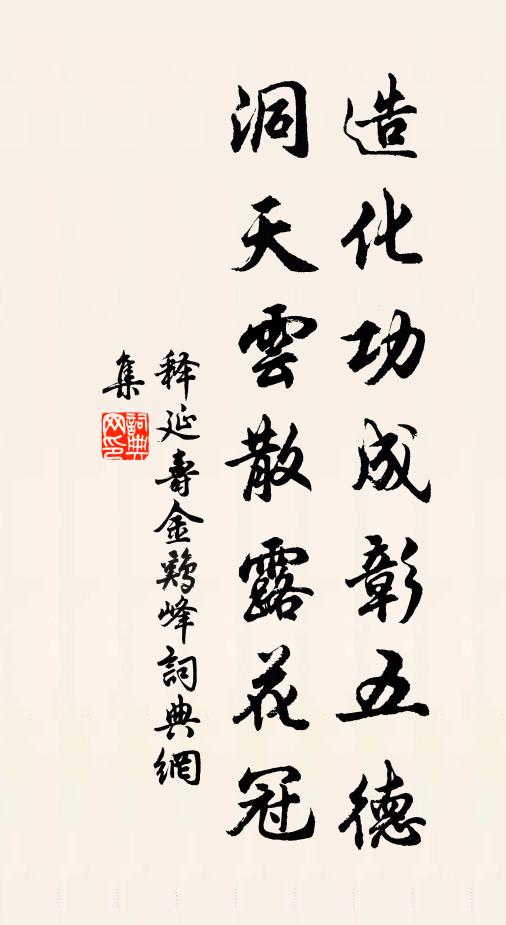 造化功成彰五德
洞天雲散露花冠
释延壽金鷄峰詞典網
集
詞典
网印